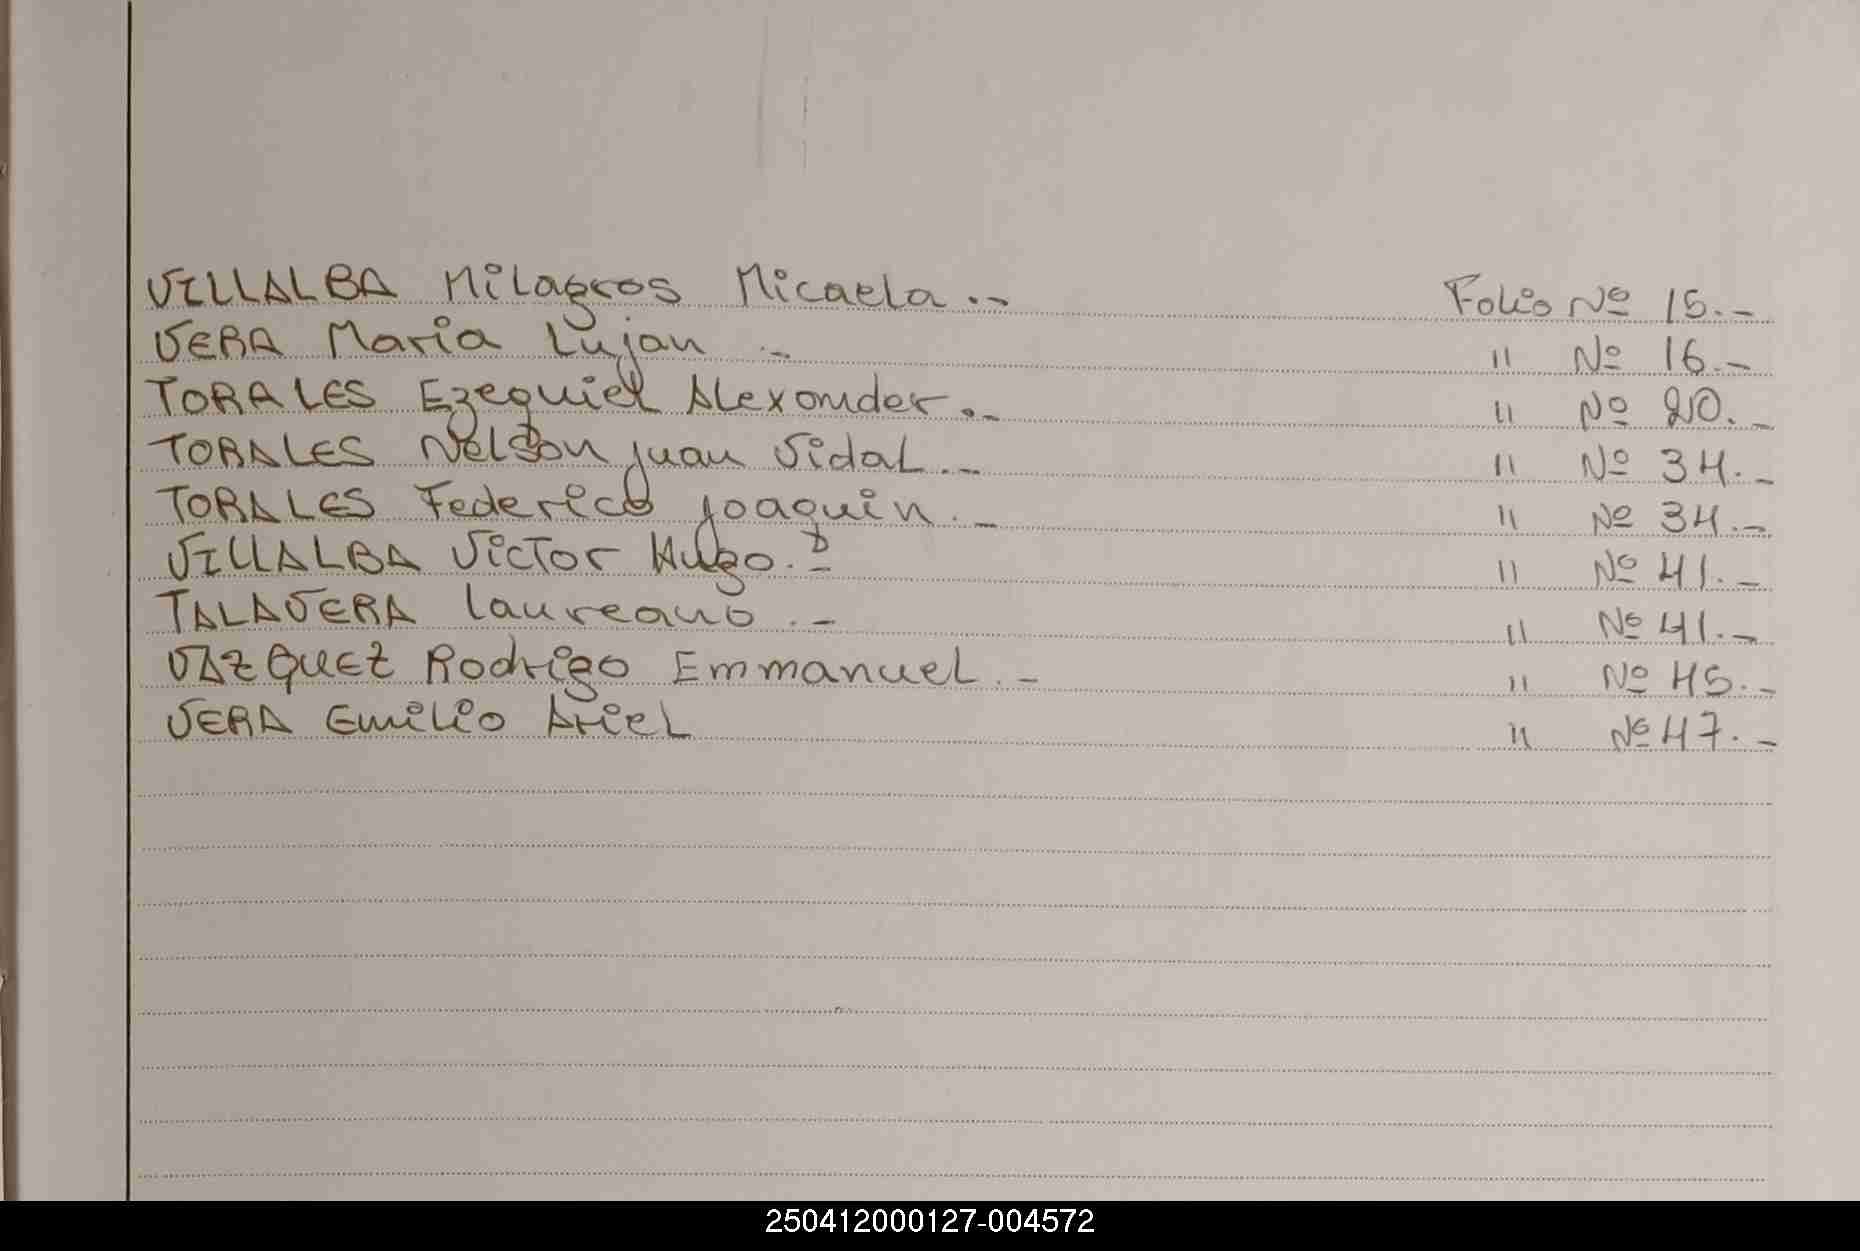 VILLALBA Milagros Micaela .- Folio Nº 15.-
VERA Maria Lujan .- " Nº 16.-
TORALES Ezequiel Alexander .- " Nº 20.-
TORALES Nelson Juan Vidal .- " Nº 34.-
TORALES Federico Joaquin .- " Nº 34.-
VILLALBA Victor Hugo .- " Nº 41.-
TALAVERA Laureano .- " Nº 41.-
VAZQUEZ Rodrigo Emmanuel .- " Nº 45.-
VERA Emilio Ariel " Nº 47.-
250412000127-004572